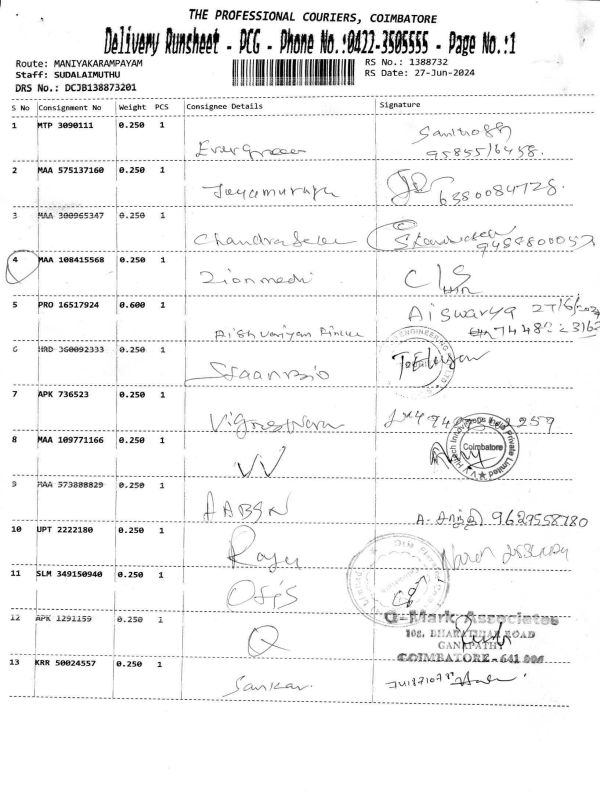 THE PROFESSIONAL COURIERS, COIMBATORE
Delivery Runsheet - PCG - Phone No.:0422-3505555 - Page No.:1
Route: MANIYAKARAMPAYAM
RS No.: 1388732
Staff: SUDALAIMUTHU
RS Date: 27-Jun-2024
DRS No.: DCJB138873201
S No Consignment No Weight PCS Consignee Details Signature
1 MTP 3090111 0.250 1
Evergreen
9585516458.
2 MAA 575137160 0.250 1
Jeyamurugan
6380084728.
3 MAA 300965347 0.250 1
Chandrasekar
4 MAA 108415568 0.250 1
Zionmedi
5 PRO 16517924 0.600 1
Aiswarya 27/6/2024
6 HRD 360092333 0.250 1
ENGINEERING
7 APK 736523 0.250 1
Vigneswara
8 MAA 109771166 0.250 1
VV
Coimbatore
Private Limited
9 MAA 573888829 0.250 1
AABSN
9629558780
10 UPT 2222180 0.250 1
Raju
11 SLM 349150940 0.250 1
Osis
12 APK 1291159 0.250 1
Q
Q-Mark Associates
108, BHARATHIAR ROAD
GANAPATHY
COIMBATORE - 641 006
13 KRR 50024557 0.250 1
Sankar